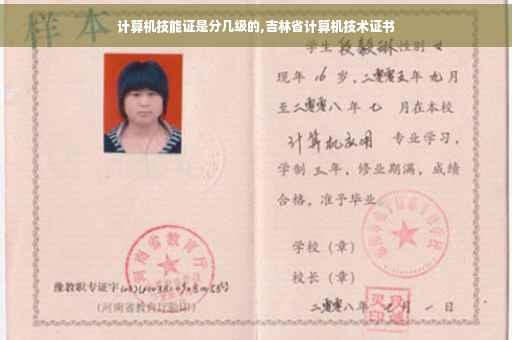 计算机技能证是分几级的,吉林省计算机技术证书
样本
学生段毅琳性别女
现年16岁,二零零五年九月
至二零零八年七月在本校
计算机应用 专业学习,
学制三年,修业期满,成绩
合格,准予毕业
学校(章)
校长(章)
二零零八年七月一日
河南省教育厅
豫教职专证字
(河南省教育厅验印)